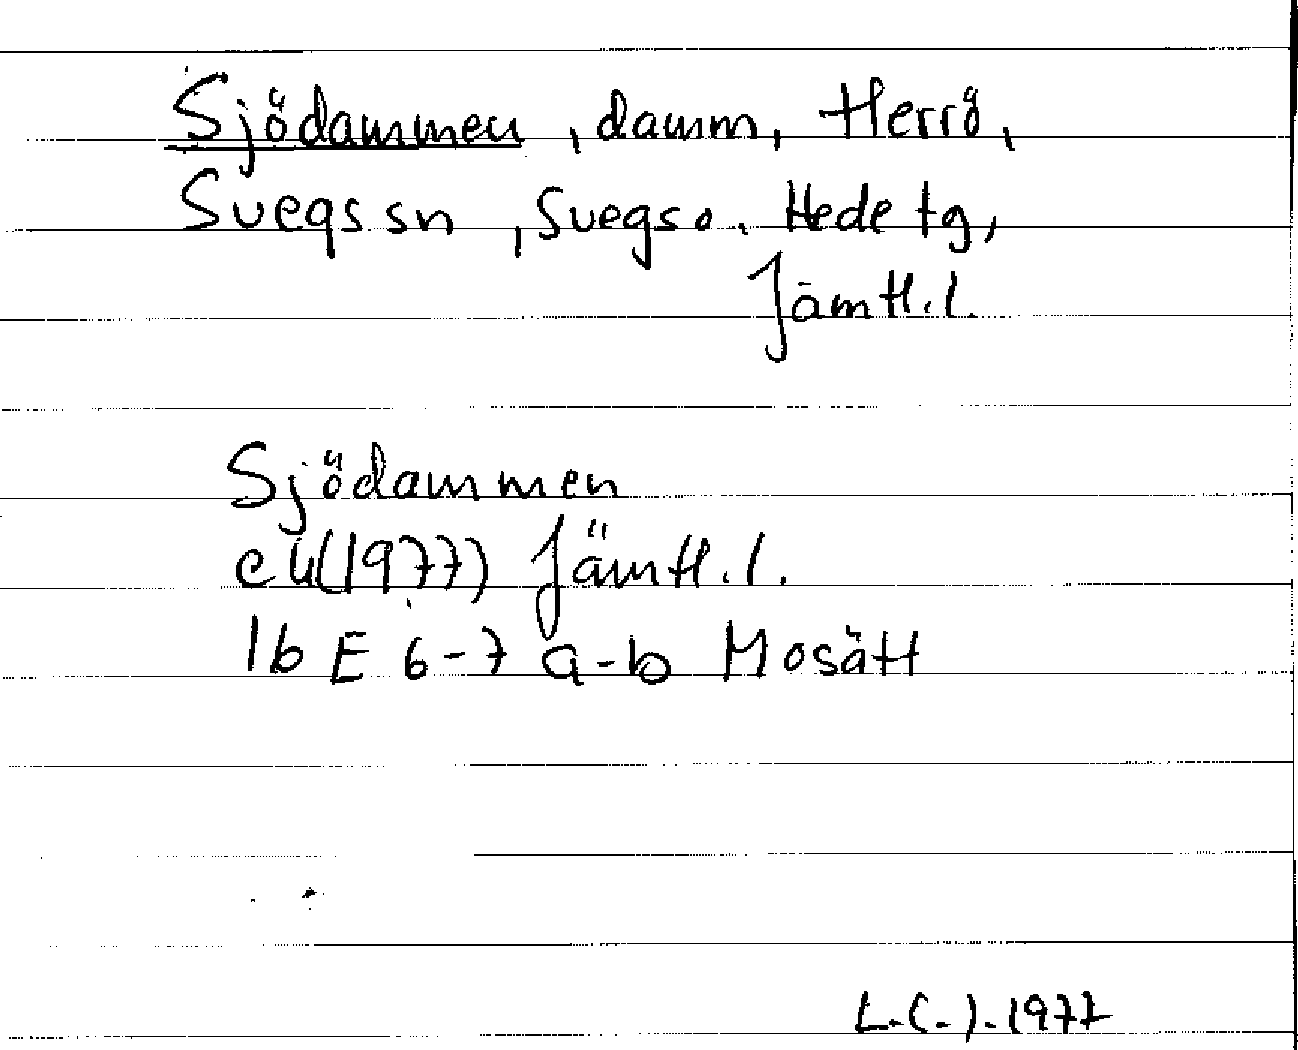 Sjödammen, damm, Herrö,
Svegs sn, Svegs o. Hede tg,
Jämtl. l.
Sjödammen
ek (1977) Jämtl. l.
16 E 6-7 a-b Mosätt
L.C.J. 1977